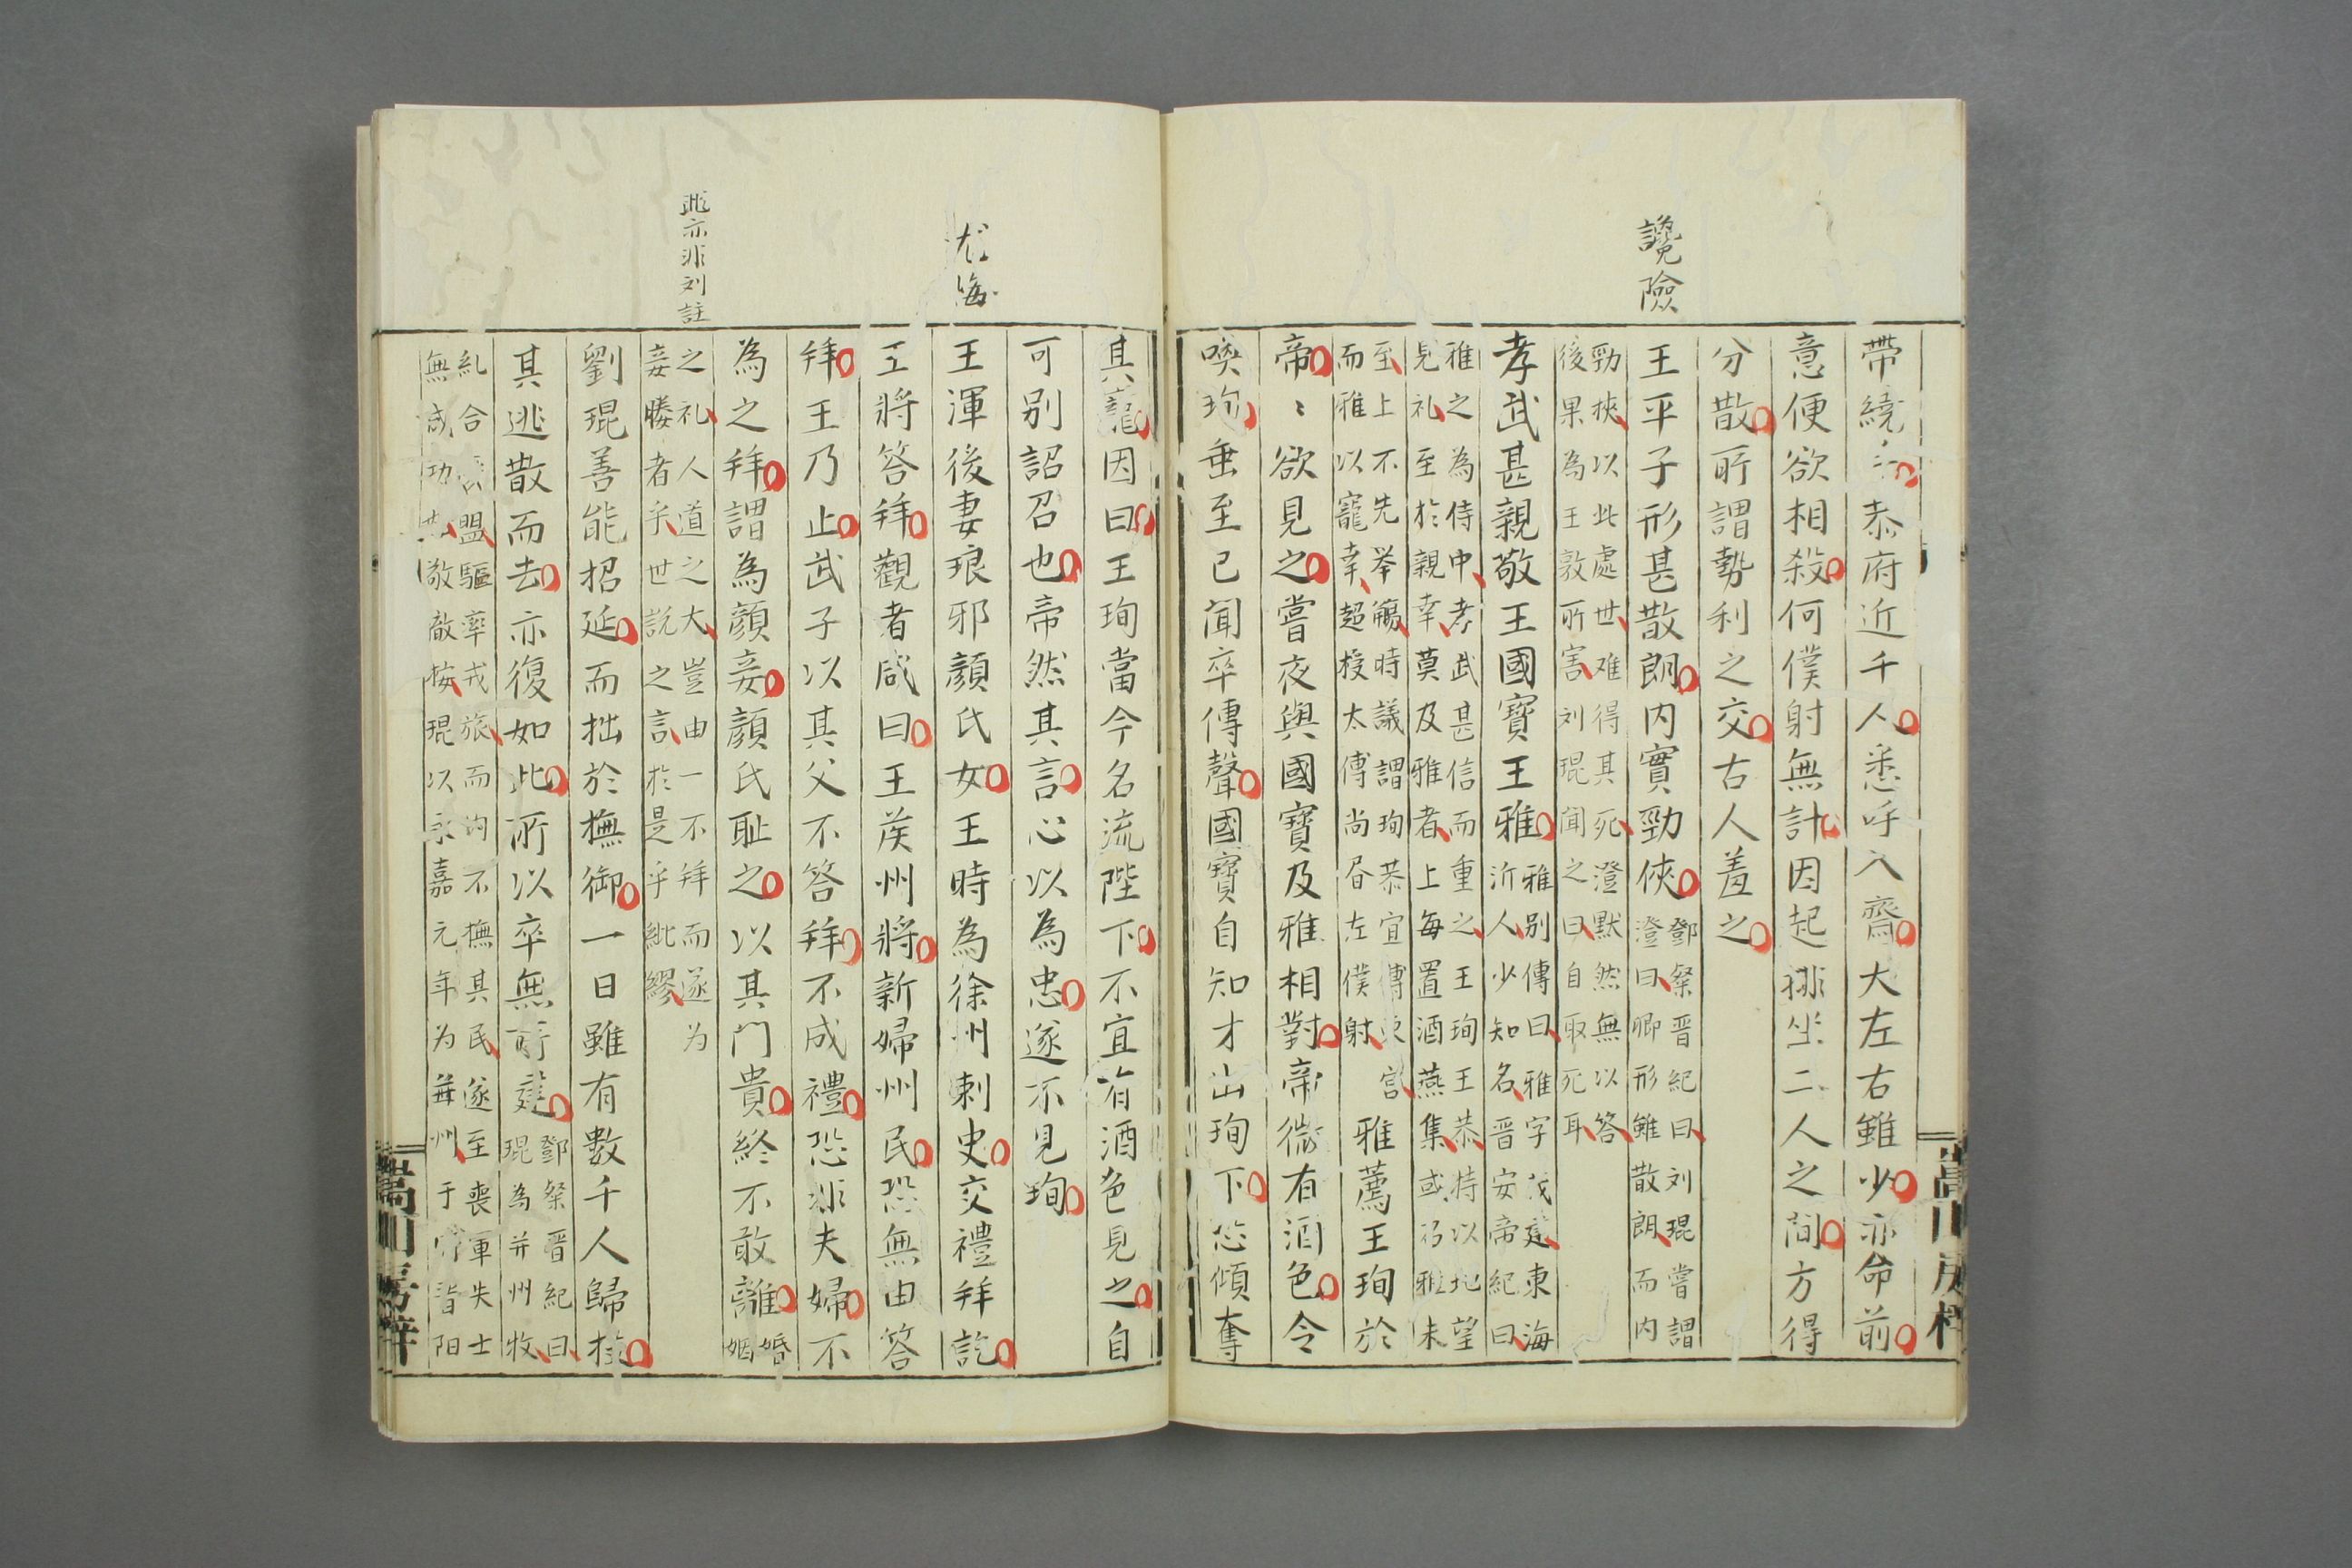 讒險
帶繞〻恭府近千人悉呼入齋大左右雖少亦命前
意便欲相殺何僕射無計因起排坐二人之間方得
分散所謂勢利之交古人羞之
王平子形甚散朗内實勁俠
鄧粲晋紀曰刘琨嘗謂
澄曰卿形雖散朗而内
勁狹以此處世难得其死澄默然無以答
後果為王敦所害刘琨闻之曰自取死耳
孝武甚親敬王國寶王雅
雅别傳曰雅字茂建東海
沂人少知名晋安帝紀曰
雅之為侍中孝武甚信而重之王珣王恭特以地望
見礼至於親幸莫及雅者上每置酒燕集或召雅未
至上不先举觴時議謂珣恭宜傅東宫
而雅以寵幸超授太傅尚昬左僕射
雅薦王珣於
帝〻欲見之嘗夜與國寶及雅相對帝微有酒色令
喚珣垂至已聞卒傳聲國寶自知才出珣下恐傾奪
嵩山房梓
尤悔
此亦非刘註
其寵因曰王珣當今名流陛下不宜有酒色見之自
可别詔召也帝然其言心以為忠遂不見珣
王渾後妻琅邪顔氏女王時為徐州刺史交禮拜訖
王將答拜觀者咸曰王侯州將新婦州民恐無由答
拜王乃止武子以其父不答拜不成禮恐非夫婦不
為之拜謂為顔妾顔氏耻之以其門貴終不敢離
婚
姻
之礼人道之大豈由一不拜而遂为
妾媵者乎世説之言於是乎紕繆
劉琨善能招延而拙於撫御一日雖有數千人歸投
其逃散而去亦復如此所以卒無所建
鄧粲晋紀曰
琨為并州牧
糺合盟驅率戎旅而内不撫其民遂至喪軍失士
無成功也敬徹按琨以永嘉元年为并州于时晋阳
嵩山房梓